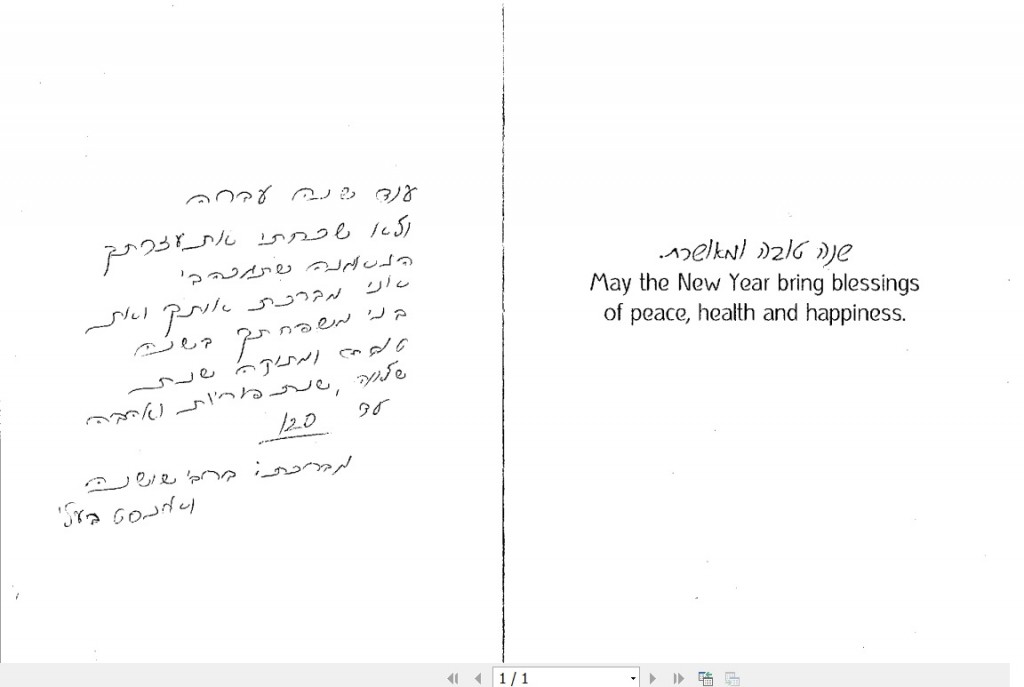 עוד שנה עברה
ולא שכחתי את עזרתך
הנאמנה שתמכה בי
אני מברכת אותך ואת
בני משפחתך בשנה
טובה ומתוקה שנת
שלווה, שנת פוריות ואהבה
עד 120
מברכת: ברבי שושנה
בעלי
שנה טובה ומאושרת.
May the New Year bring blessings
of peace, health and happiness.
1 / 1